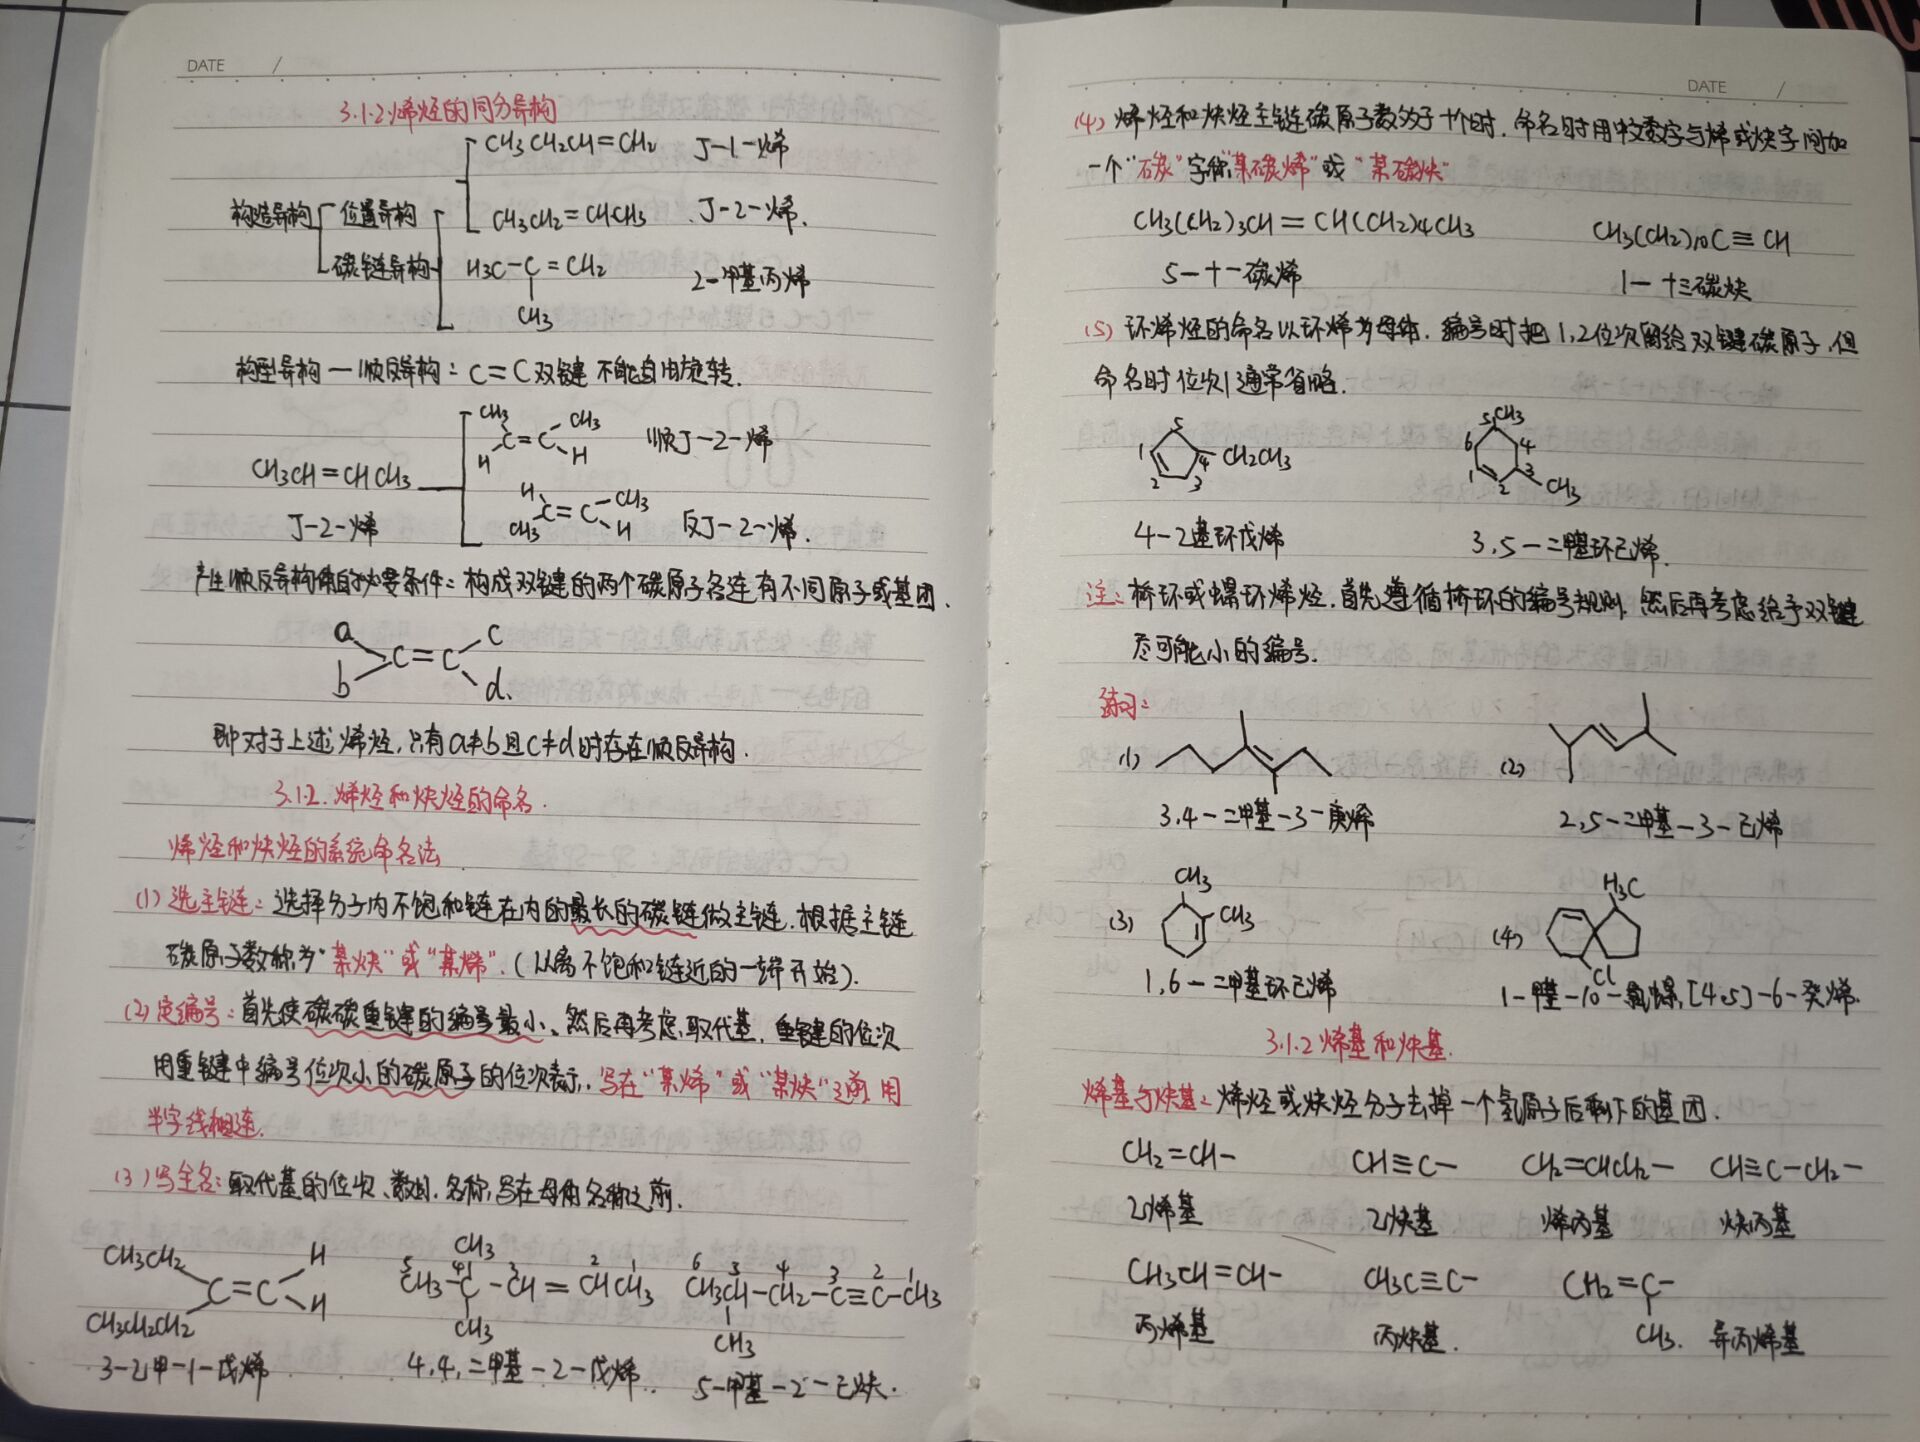 DATE /
3.1.2 烯烃的同分异构
CH3CH2CH=CH2 J-1-烯
构造异构 位置异构 CH3CH2=CHCH3 J-2-烯.
碳链异构 H3C-C=CH2 2-甲基丙烯
CH3
构型异构—顺反异构: C=C双键 不能自由旋转.
CH3 CH3
C=C 顺J-2-烯
H H
CH3CH=CHCH3
H CH3
C=C
CH3 H 反J-2-烯.
J-2-烯
产生顺反异构体的必要条件: 构成双键的两个碳原子各连有不同原子或基团.
a c
C=C
b d.
即对于上述烯烃,只有a≠b且c≠d时存在顺反异构.
3.1.2. 烯烃和炔烃的命名.
烯烃和炔烃的系统命名法
(1) 选主链: 选择分子内不饱和链在内的最长的碳链做主链. 根据主链
碳原子数称为"某炔"或"某烯".(以离不饱和链近的一端开始).
(2) 定编号: 首先使碳碳重键的编号最小、然后再考虑取代基. 重键的位次
用重键中编号位次小的碳原子的位次表示. 写在"某烯"或"某炔"之前 用
半字线相连.
(3) 写全名: 取代基的位次、数目. 名称,写在母体名称之前.
CH3CH2 H
C=C
CH3CH2CH2 H
3-2甲-1-戊烯
CH3
5 4 3 2 1
CH3-C-CH=CHCH3
CH3
4,4,二甲基-2-戊烯.
6 5 4 3 2 1
CH3CH-CH2-C≡C-CH3
CH3
5-甲基-2-己炔.
DATE /
(4) 烯烃和炔烃主链碳原子数为于十个时. 命名时用中文数字与烯或炔字间加
一个"碳"字称"某碳烯"或"某碳炔"
CH3(CH2)3CH=CH(CH2)4CH3 CH3(CH2)10C≡CH
5-十一碳烯 1-十三碳炔
(5) 环烯烃的命名以环烯为母体. 编号时把1,2位次留给双键碳原子.但
命名时位次1通常省略.
5 1 4 2 3 CH2CH3
5 CH3 6 4 1 3 2 CH3
4-2基环戊烯 3,5-二甲基环己烯.
注: 桥环或螺环烯烃. 首先遵循桥环的编号规则. 然后再考虑给予双键
尽可能小的编号.
练习:
(1) (2)
3,4-二甲基-3-庚烯 2,5-二甲基-3-己烯
CH3 H3C
(3) CH3 (4)
Cl
1,6-二甲基环己烯 1-甲基-10-氯螺[4.5]-6-癸烯.
3.1.2 烯基和炔基.
烯基与炔基: 烯烃或炔烃分子去掉一个氢原子后剩下的基团.
CH2=CH- CH≡C- CH2=CHCH2- CH≡C-CH2-
2烯基 2炔基 烯丙基 炔丙基
CH3CH=CH- CH3C≡C- CH2=C-
丙烯基 丙炔基. CH3. 异丙烯基